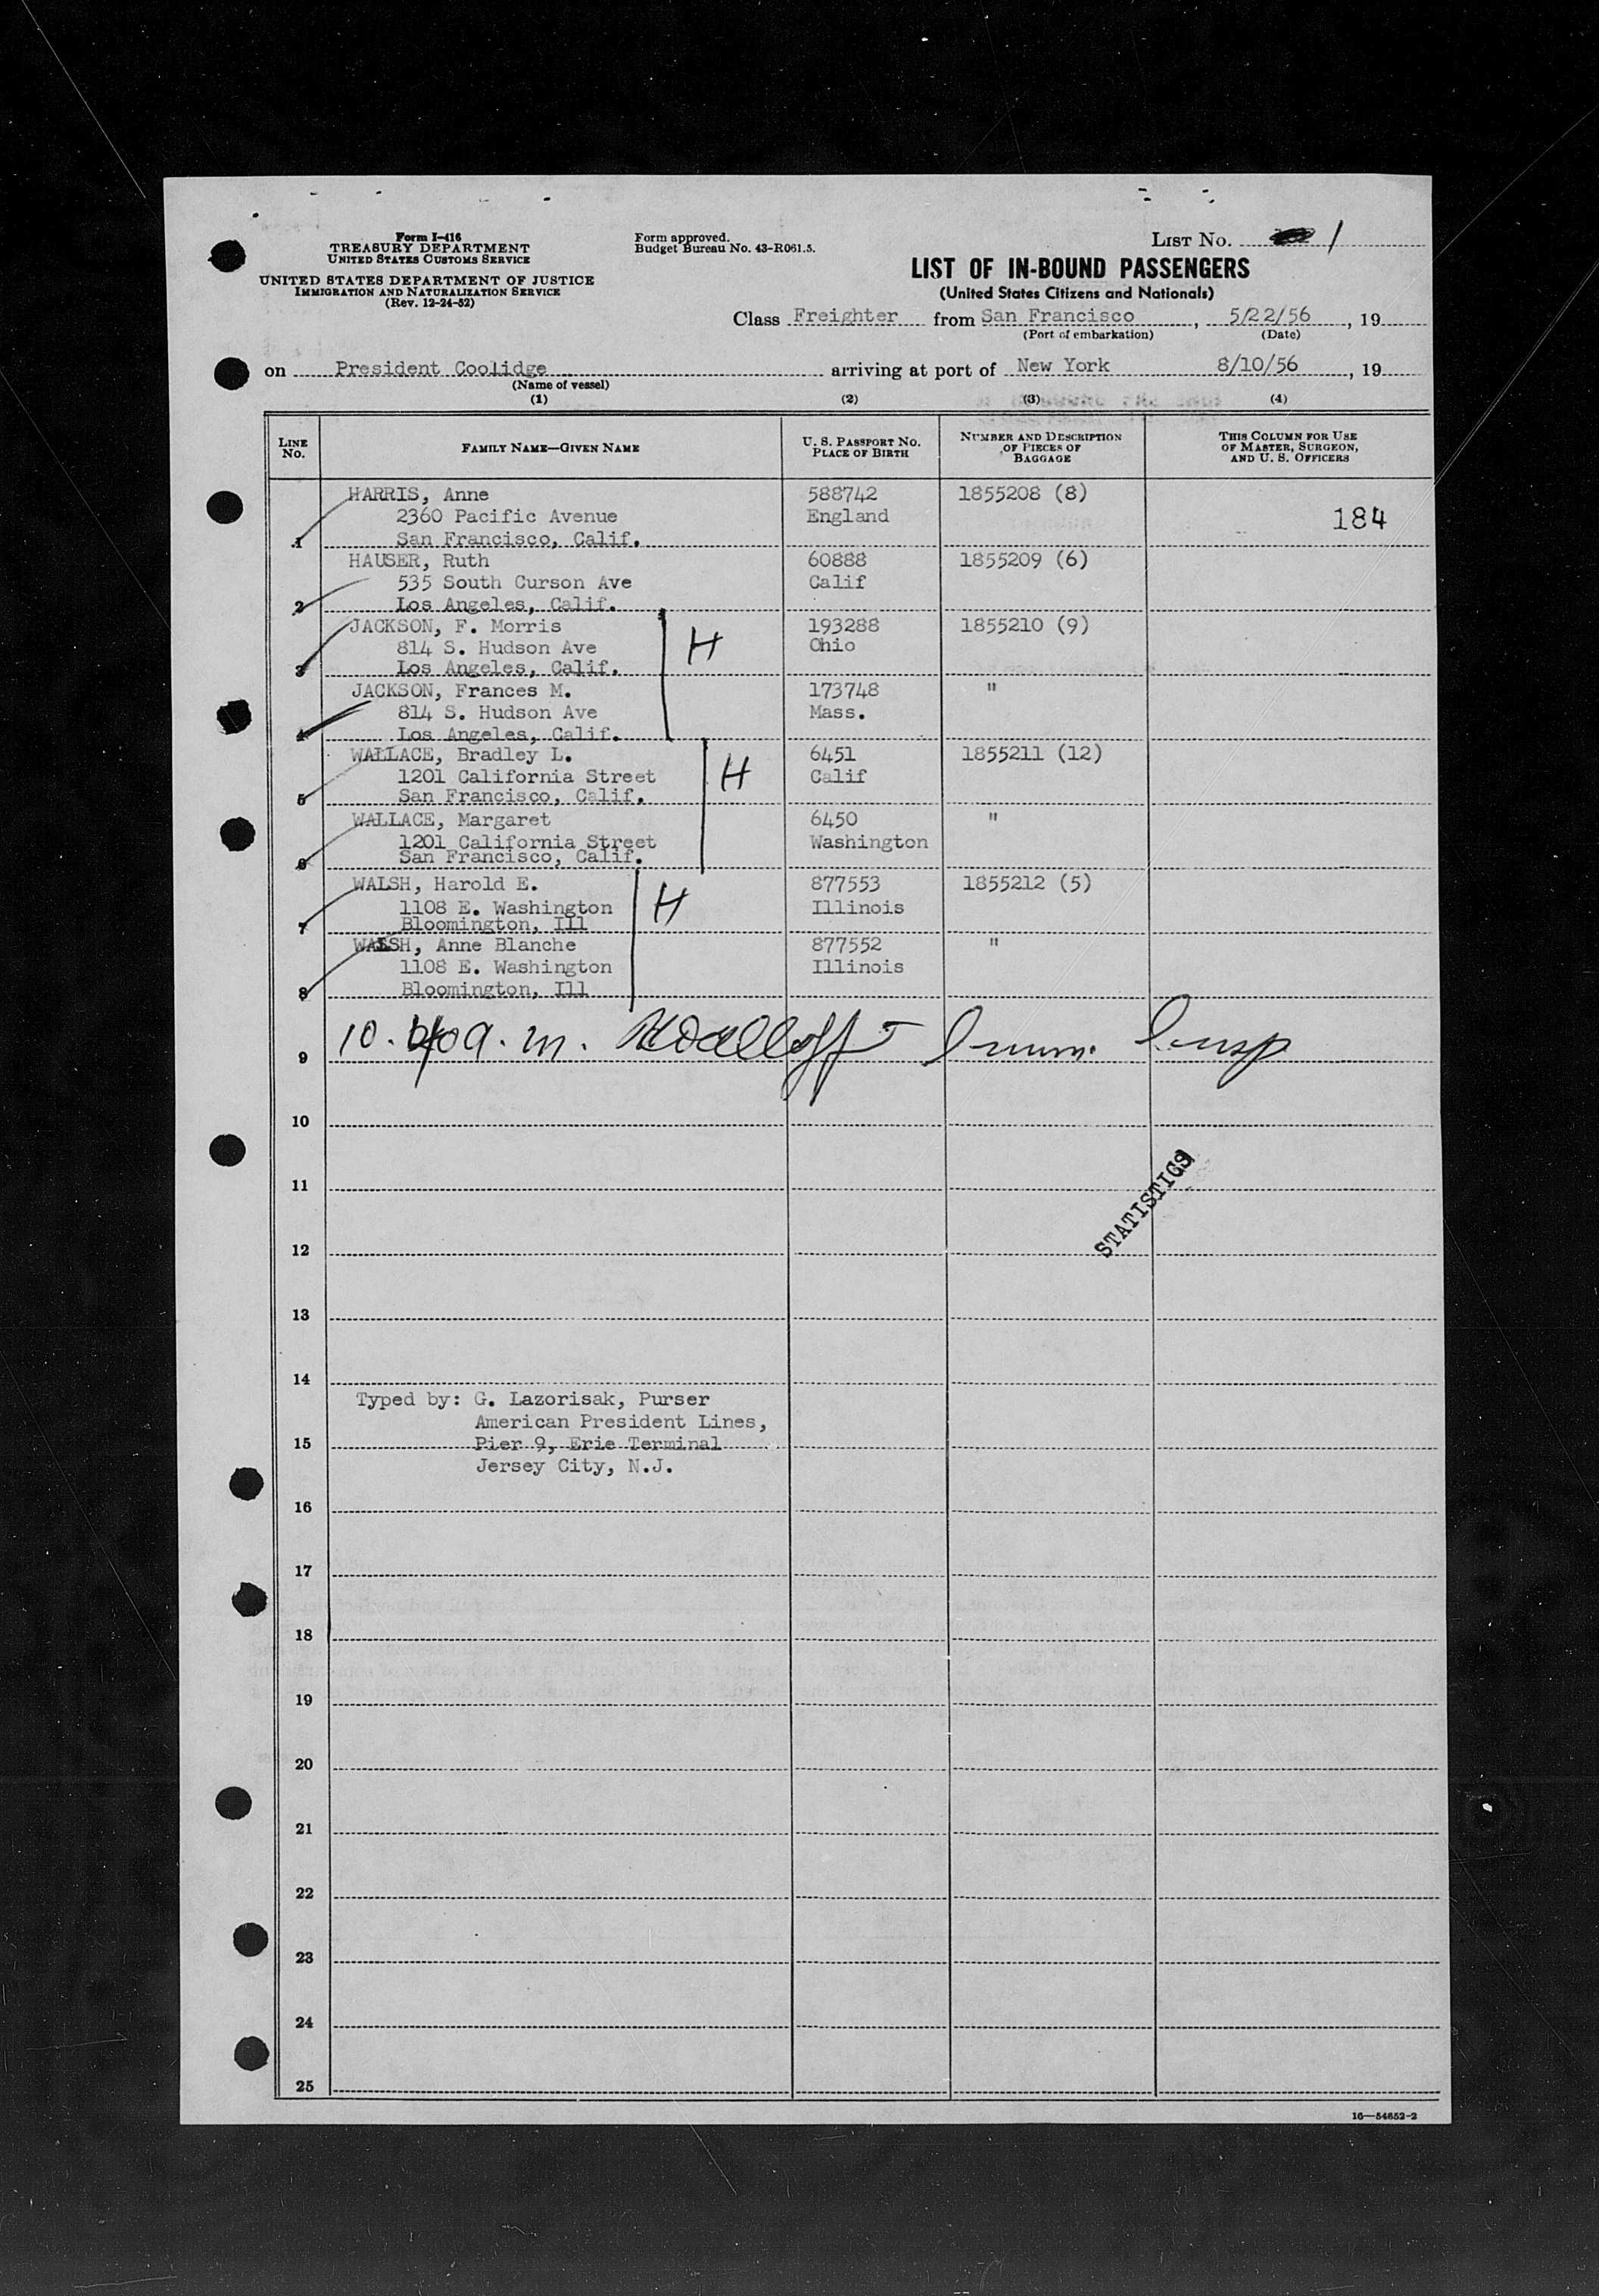 Form I-416
TREASURY DEPARTMENT
UNITED STATES CUSTOMS SERVICE
UNITED STATES DEPARTMENT OF JUSTICE
IMMIGRATION AND NATURALIZATION SERVICE
(Rev. 12-24-52)
Form approved.
Budget Bureau No. 43-R061.5.
LIST NO. 1
LIST OF IN-BOUND PASSENGERS
(United States Citizens and Nationals)
Class Freighter from San Francisco, 5/22/56, 19
(Port of embarkation) (Date)
on President Coolidge arriving at port of New York 8/10/56, 19
(Name of vessel)
(1) (2) (3) (4)
LINE NO.
FAMILY NAME—GIVEN NAME
U. S. PASSPORT NO.
PLACE OF BIRTH
NUMBER AND DESCRIPTION
OF PIECES OF
BAGGAGE
THIS COLUMN FOR USE
OF MASTER, SURGEON,
AND U. S. OFFICERS
HARRIS, Anne 588742 1855208 (8)
2360 Pacific Avenue England 184
1 San Francisco, Calif.
HAUSER, Ruth 60888 1855209 (6)
535 South Curson Ave Calif
2 Los Angeles, Calif.
JACKSON, F. Morris 193288 1855210 (9)
814 S. Hudson Ave H Ohio
3 Los Angeles, Calif.
JACKSON, Frances M. 173748 "
814 S. Hudson Ave Mass.
4 Los Angeles, Calif.
WALLACE, Bradley L. 6451 1855211 (12)
1201 California Street H Calif
5 San Francisco, Calif.
WALLACE, Margaret 6450 "
1201 California Street Washington
6 San Francisco, Calif.
WALSH, Harold E. 877553 1855212 (5)
1108 E. Washington H Illinois
7 Bloomington, Ill
WALSH, Anne Blanche 877552 "
1108 E. Washington Illinois
8 Bloomington, Ill
9 a.m. Imm. Insp
10
11
STATISTICS
12
13
14
Typed by: G. Lazorisak, Purser
American President Lines,
15 Pier 9, Erie Terminal
Jersey City, N.J.
16
17
18
19
20
21
22
23
24
25
16—54652-2